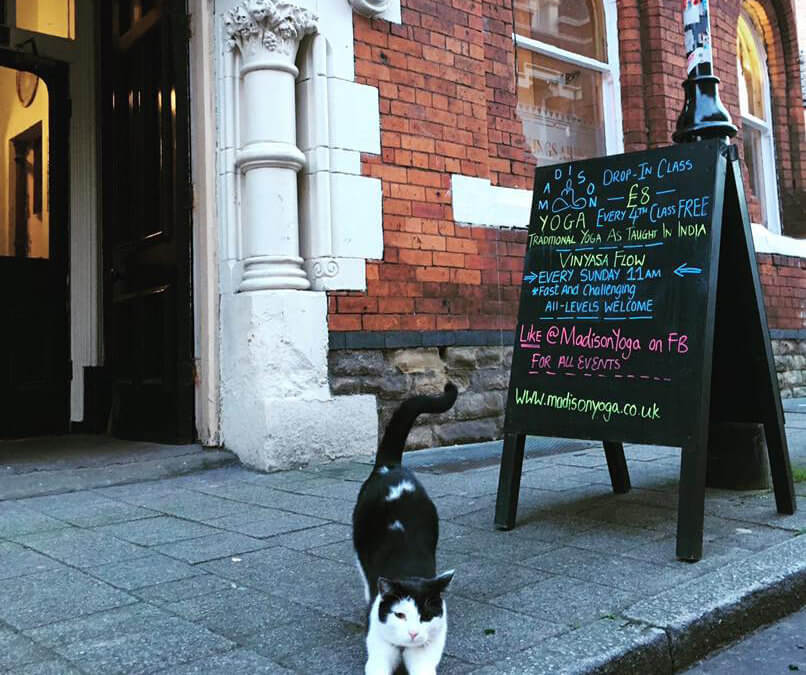 MADISON
YOGA
DROP-IN CLASS
£8
EVERY 4TH CLASS FREE
TRADITIONAL YOGA AS TAUGHT IN INDIA
VINYASA FLOW
→ EVERY SUNDAY 11AM ←
*FAST AND CHALLENGING
All-LEVELS WELCOME
LIKE @MADISONYOGA on FB
FOR ALL EVENTS
WWW.madisonyoga.co.uk